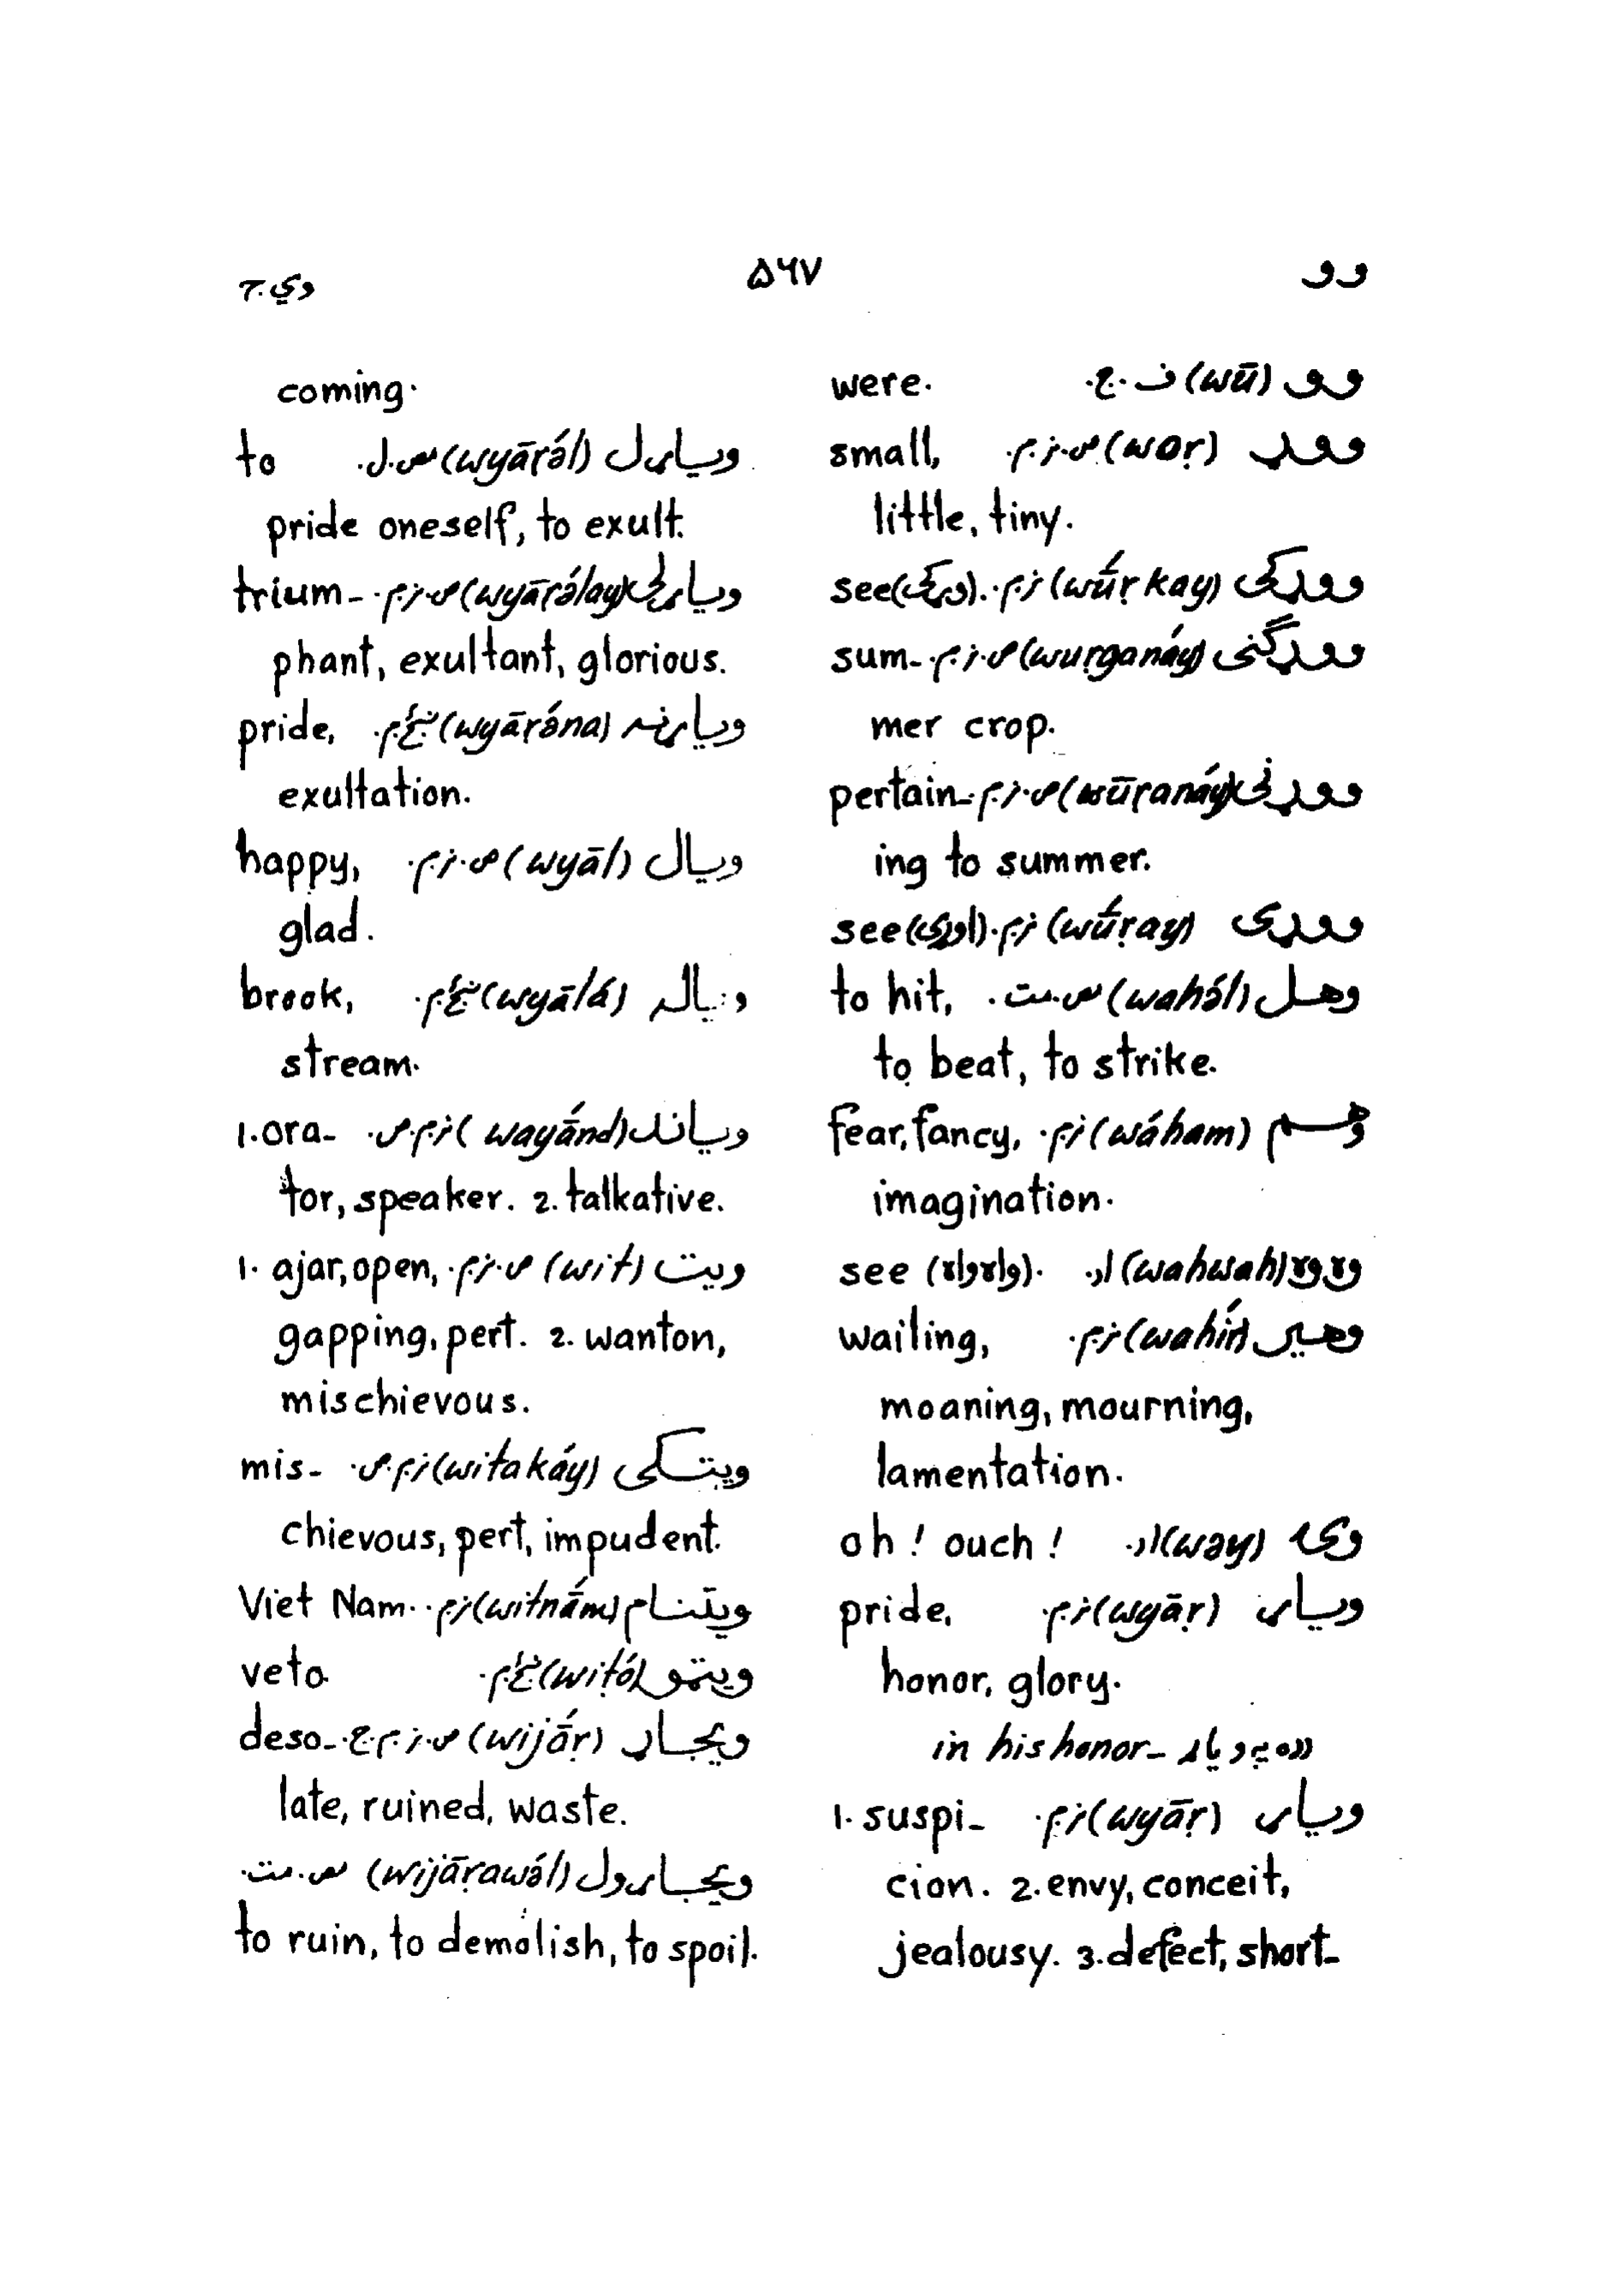 وو ۵۶۷ وي.ج
وو (wū) ف.ج. were.
ووړ (woṛ) ص.ز.م. small,
little, tiny.
ووړکی (wū́ṛkay) ز.م. see(وړکی).
ووړګنی (wuṛganáy) ص.ز.م. sum-
mer crop.
ووړنی (wūṛanáy) ص.ز.م. pertain-
ing to summer.
ووړی (wū́ṛay) ز.م. see(اوړی).
وهل (wahə́l) س.مت. to hit,
to beat, to strike.
وهم (wáham) ز.م. fear, fancy,
imagination.
وه وه (wahwah) ار. see (واه واه).
وهیر (wahír) ز.م. wailing,
moaning, mourning,
lamentation.
وی (wəy) ار. oh! ouch!
ویاړ (wyāṛ) ز.م. pride,
honor, glory.
in his honor-
ویاړ (wyāṛ) ز.م. 1. suspi-
cion. 2. envy, conceit,
jealousy. 3. defect, short-
coming.
ویاړل (wyāṛə́l) س.ل. to
pride oneself, to exult.
ویاړلی (wyāṛə́lay) ص.ز.م. trium-
phant, exultant, glorious.
ویاړنه (wyāṛə́na) ښځ.م. pride,
exultation.
ویال (wyāl) ص.ز.م. happy,
glad.
ویاله (wyālá) ښځ.م. brook,
stream.
ویاند (wayā́nd) ز.م.ص. 1. ora-
tor, speaker. 2. talkative.
ویت (wit) ص.ز.م. 1. ajar, open,
gapping, pert. 2. wanton,
mischievous.
ویتکی (witakáy) ز.م.ص. mis-
chievous, pert, impudent.
ویتنام (witnā́m) ز.م. Viet Nam.
ویټو (wiṭó) ښځ.م. veto
ویجاړ (wijā́ṛ) ص.ز.م.ج. deso-
late, ruined, waste.
ویجاړول (wijāṛawə́l) س.مت.
to ruin, to demolish, to spoil.